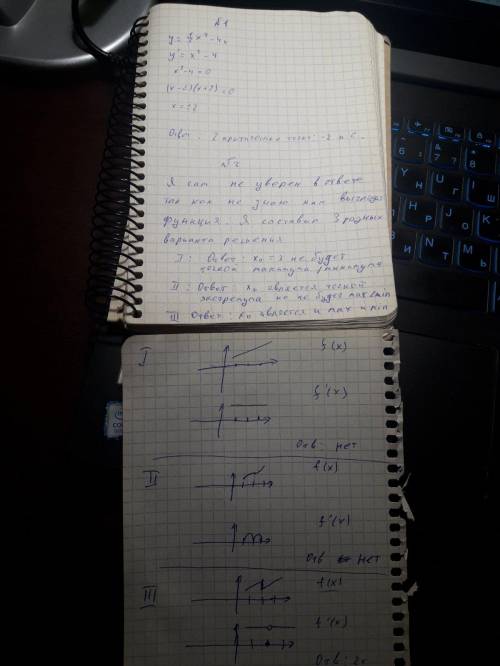 №1
y' = x² - 4
x² - 4 = 0
(x-2)(x+2)=0
x = ±2
Ответ: 2 критические точки: -2 и
№2
Я сам не уверен в ответе
так как не знаю как выглядит
функция. Я составил 3 разных
варианта решения
I: Ответ: x₀ = не будет
точкой максимума / минимума
II: Ответ x₀ является точкой
экстремума но не будет max и min
III Ответ: x₀ является и max и min
I f(x)
f'(x)
Отв: нет
II f(x)
f'(x)
Отв нет
III f(x)
f'(x)
Отв: